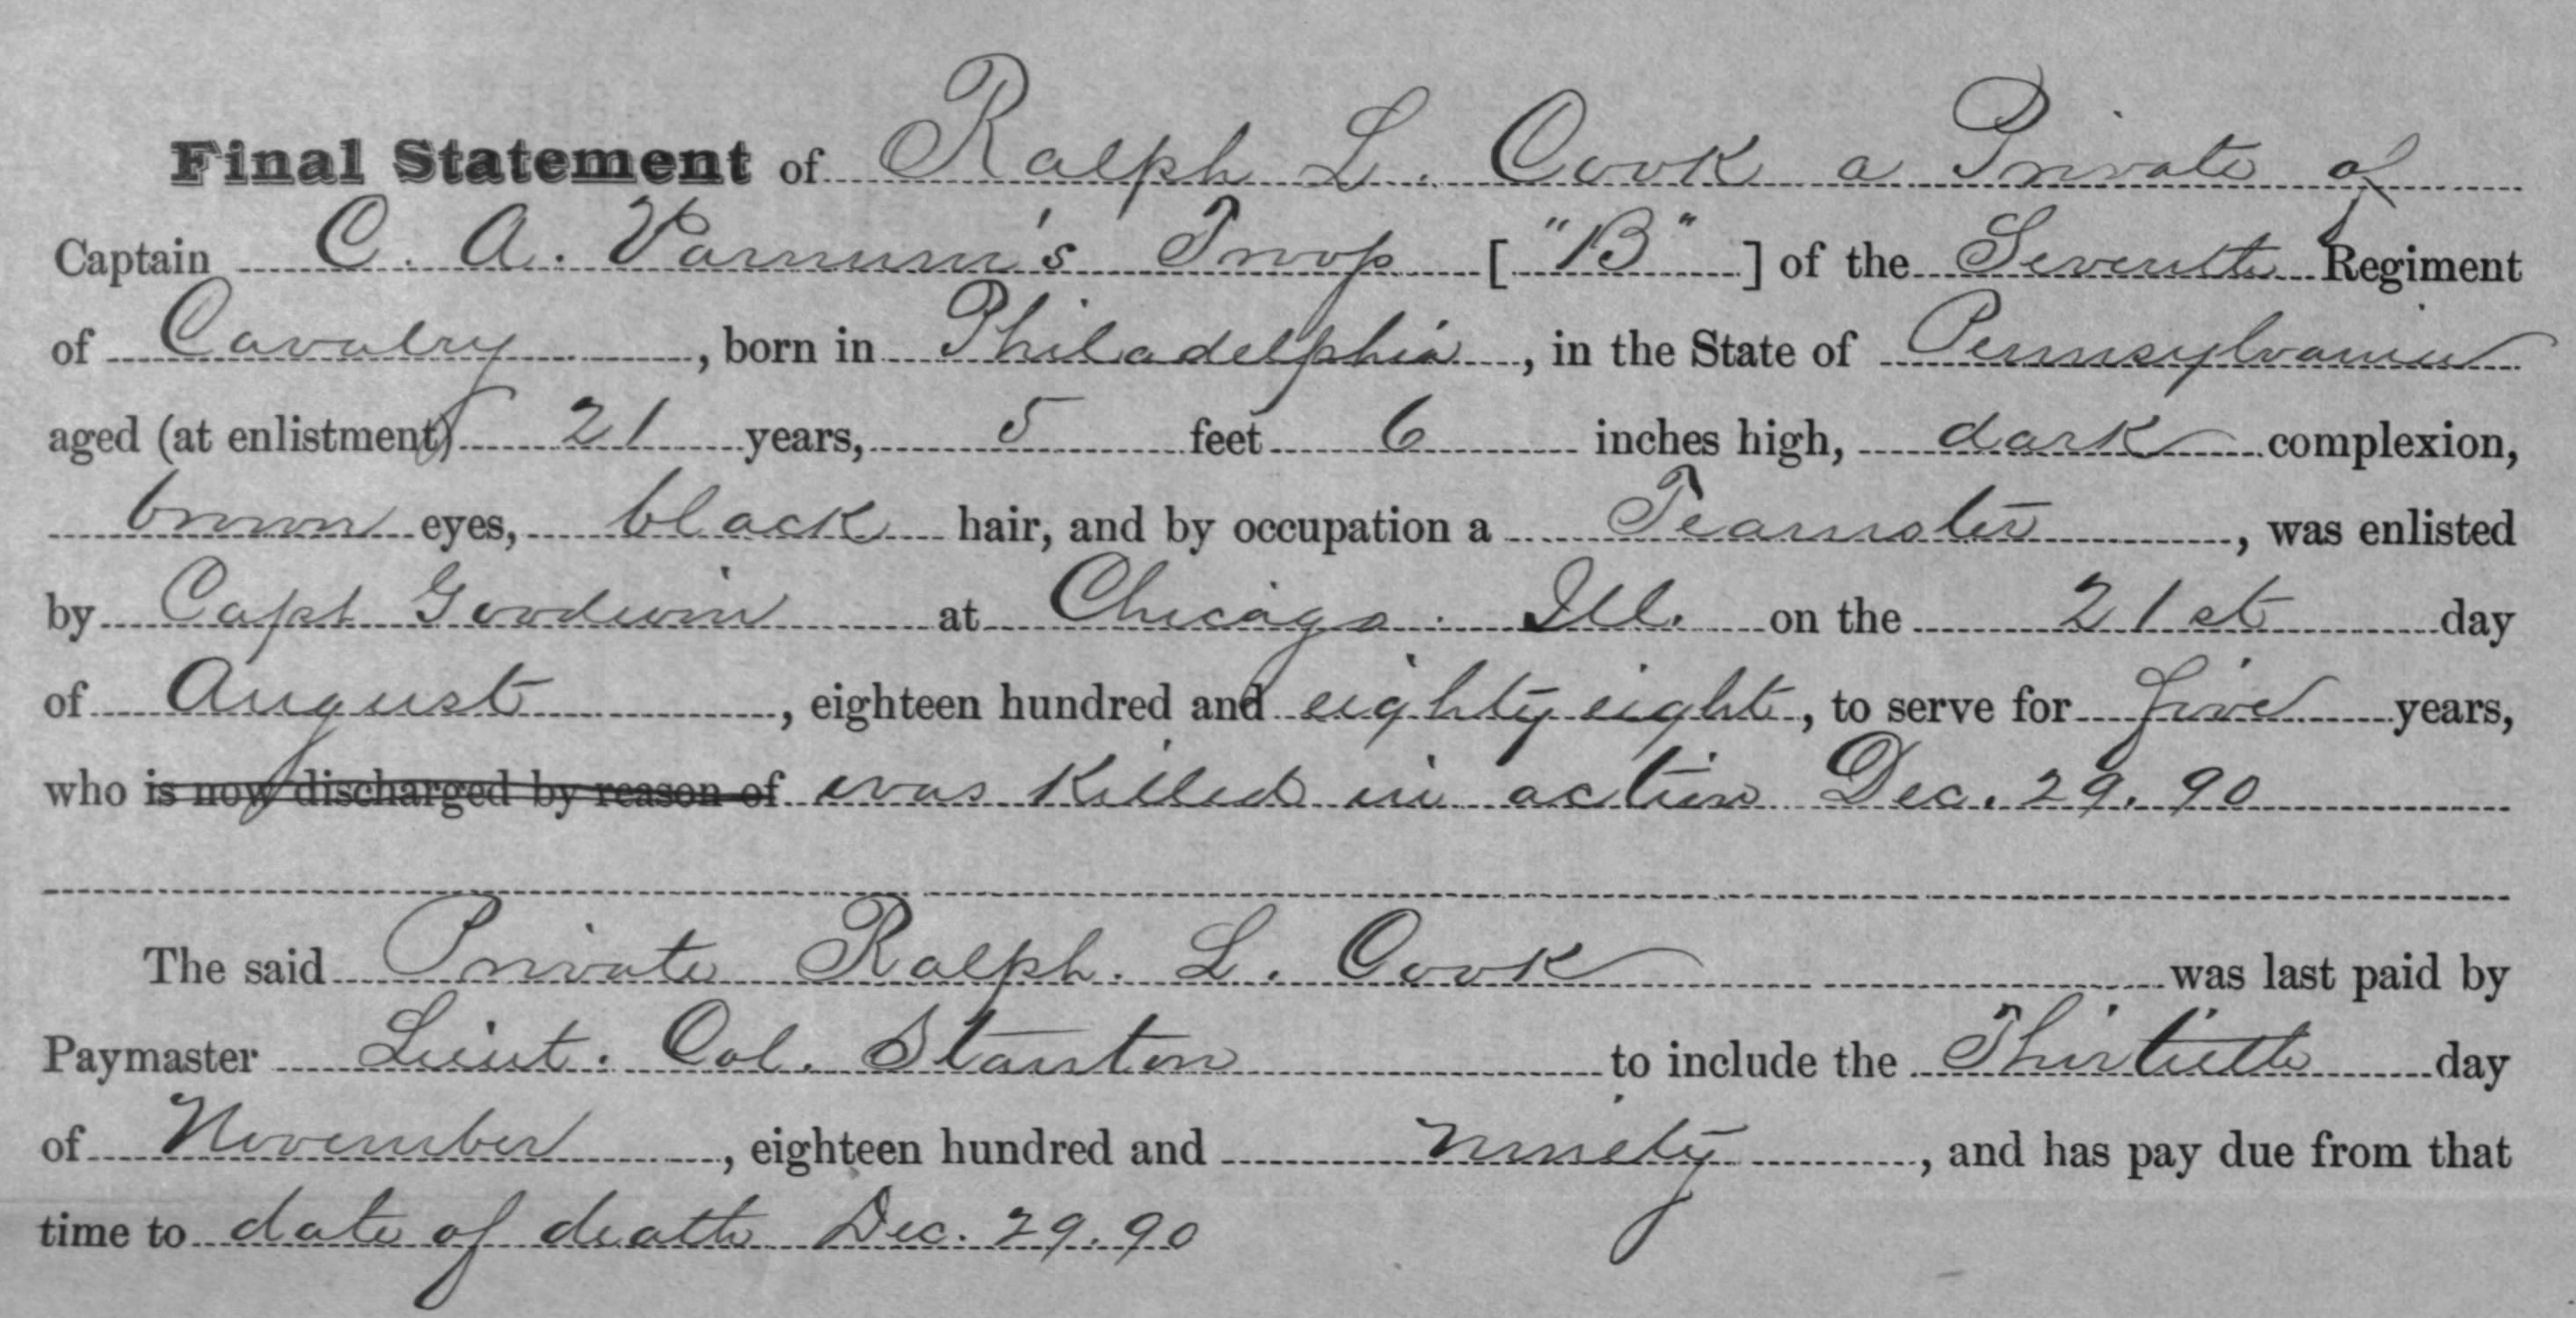 Final Statement of Ralph L. Cook a Private of
Captain C. A. Varnum's Troop ["B"] of the Seventh Regiment
of Cavalry, born in Philadelphia, in the State of Pennsylvania
aged (at enlistment) 21 years, 5 feet 6 inches high, dark complexion,
brown eyes, black hair, and by occupation a Teamster, was enlisted
by Capt Goodwin at Chicago. Ill. on the 21st day
of August, eighteen hundred and eighty eight, to serve for five years,
who is now discharged by reason of was killed in action Dec. 29. 90
The said Private Ralph. L. Cook was last paid by
Paymaster Lieut. Col. Stanton to include the Thirtieth day
of November, eighteen hundred and ninety, and has pay due from that
time to date of death Dec. 29. 90